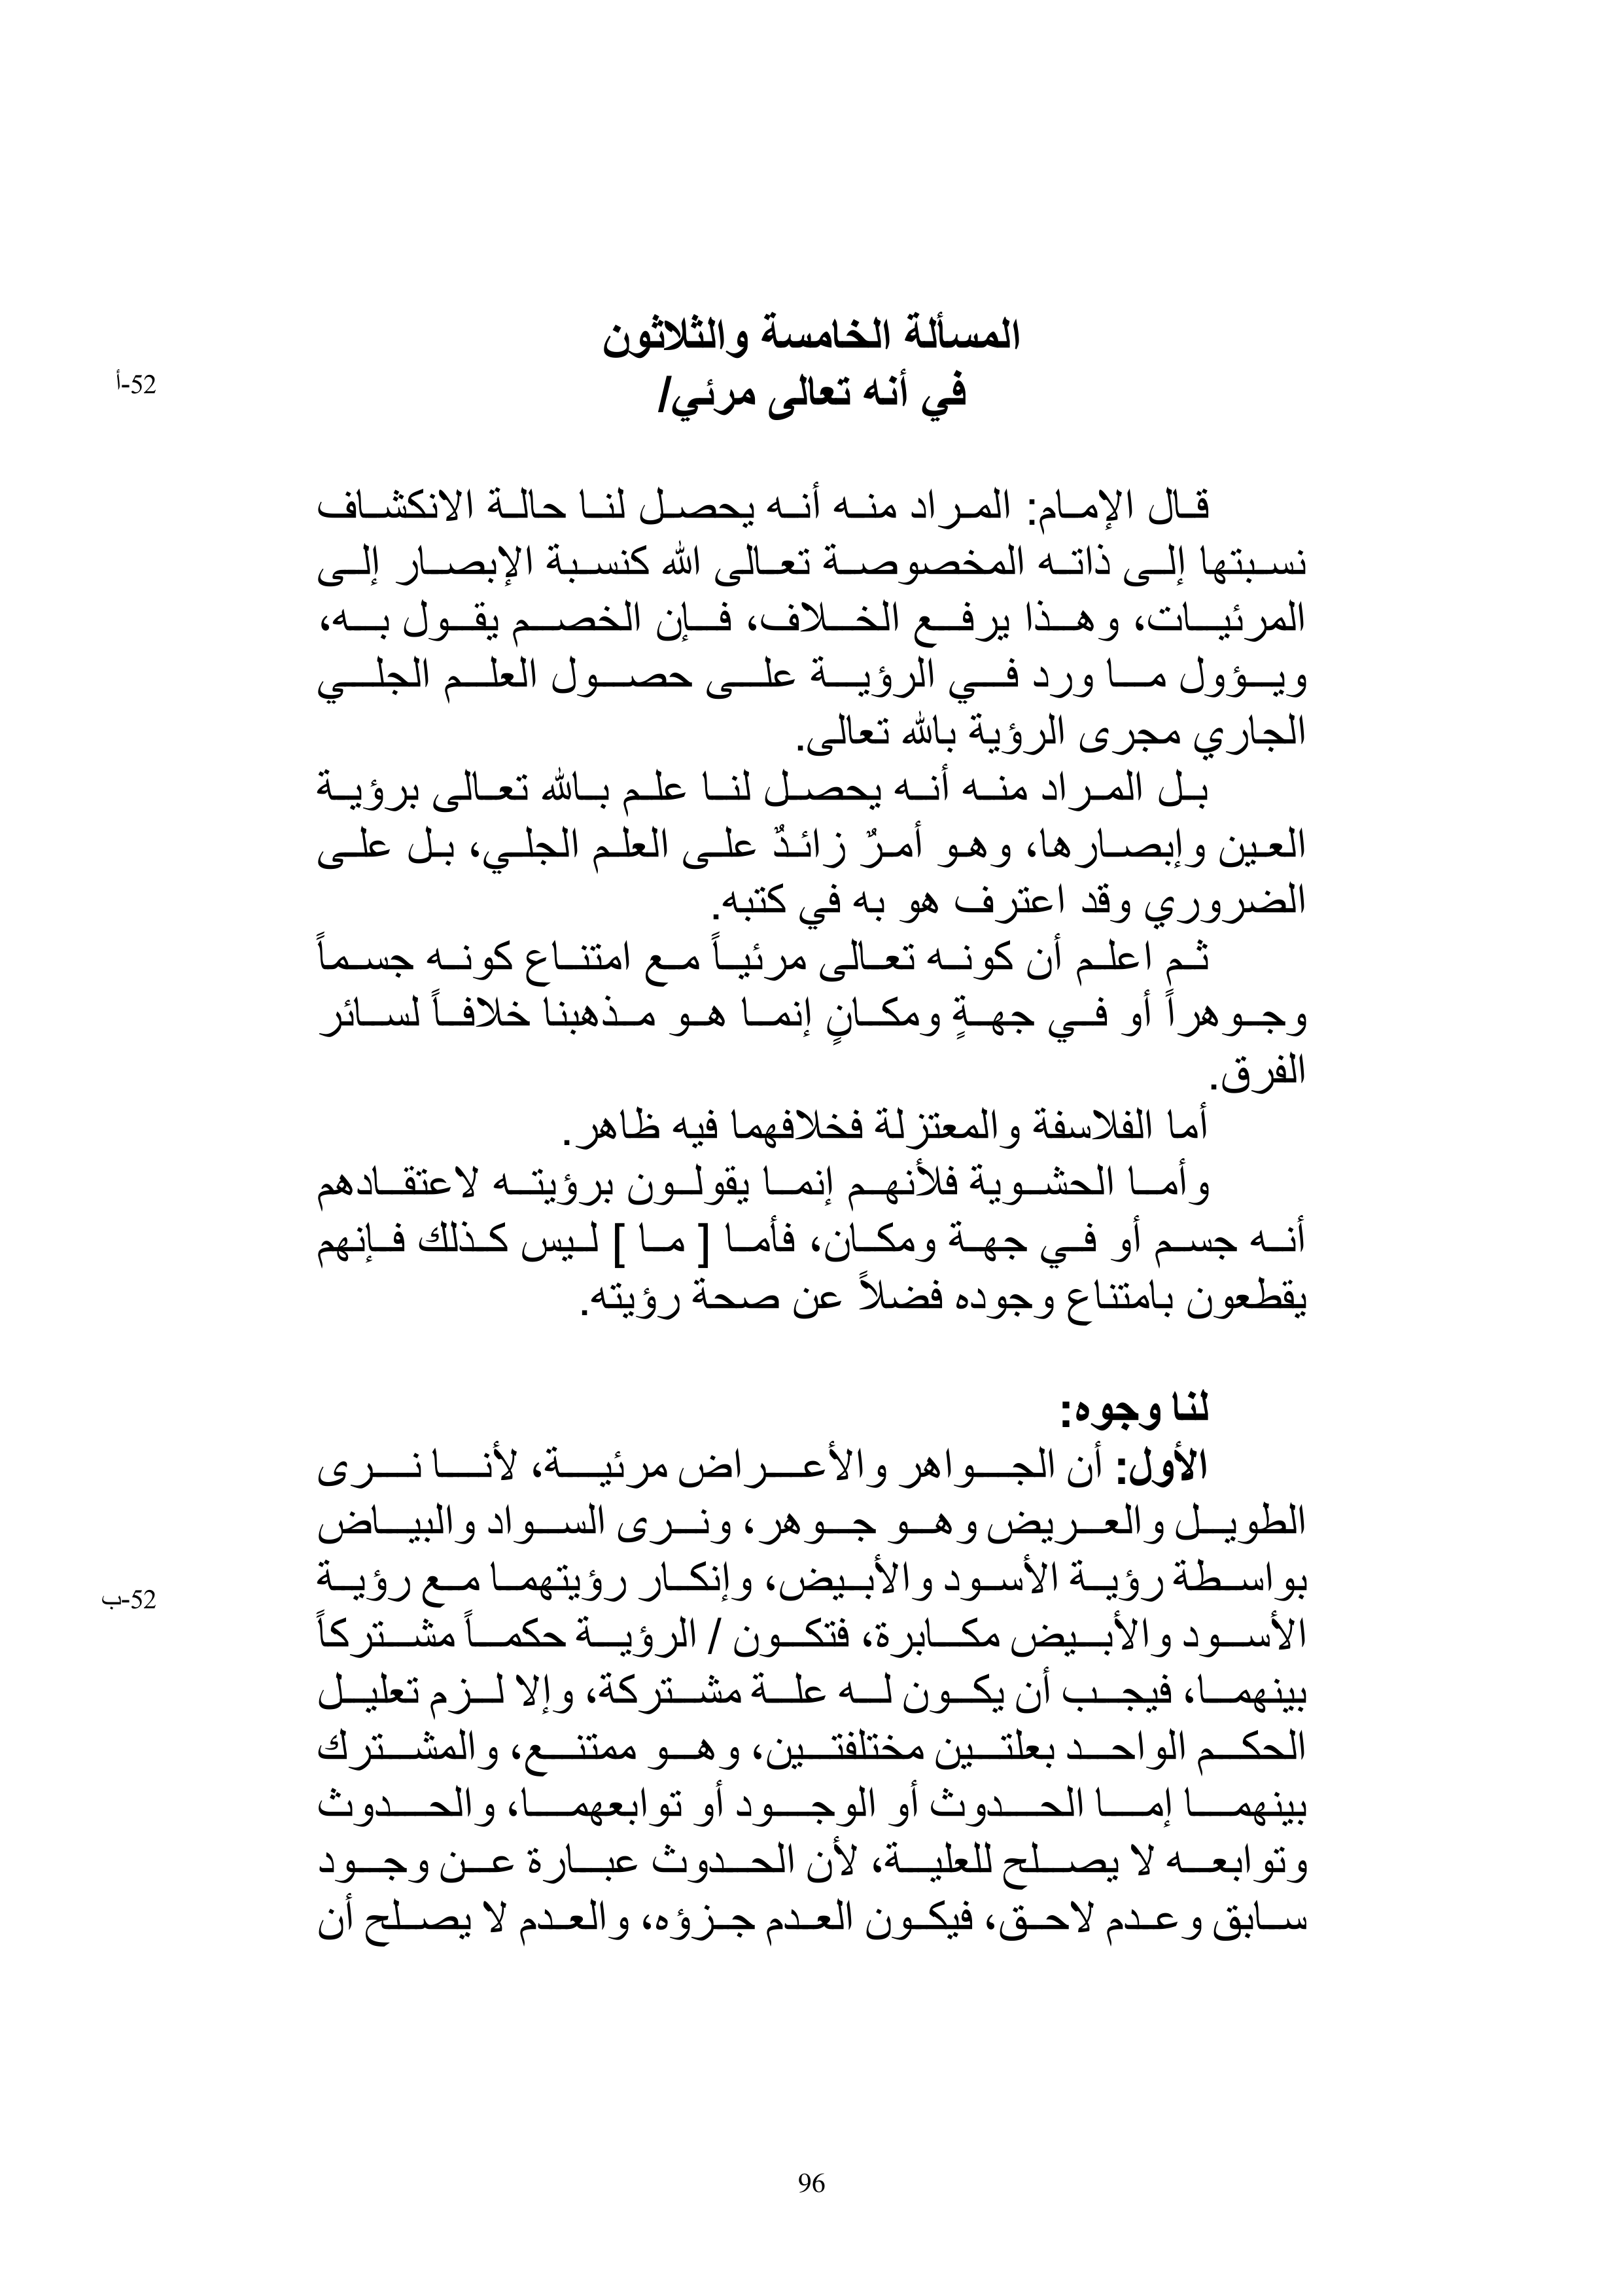 المسألة الخامسة والثلاثون
52-أ
في أنه تعالى مرئي/
قال الإمام: المراد منه أنه يحصل لنا حالة الانكشاف
نسبتها إلى ذاته المخصوصة تعالى الله كنسبة الإبصار إلى
المرئيات، وهذا يرفع الخلاف، فإن الخصم يقول به،
ويؤول ما ورد في الرؤية على حصول العلم الجلي
الجاري مجرى الرؤية بالله تعالى.
بل المراد منه أنه يحصل لنا علم بالله تعالى برؤية
العين وإبصارها، وهو أمرٌ زائدٌ على العلم الجلي، بل على
الضروري وقد اعترف هو به في كتبه.
ثم اعلم أن كونه تعالى مرئياً مع امتناع كونه جسماً
وجوهراً أو في جهةٍ ومكانٍ إنما هو مذهبنا خلافاً لسائر
الفرق.
أما الفلاسفة والمعتزلة فخلافهما فيه ظاهر.
وأما الحشوية فلأنهم إنما يقولون برؤيته لاعتقادهم
أنه جسم أو في جهة ومكان، فأما [ ما ] ليس كذلك فإنهم
يقطعون بامتناع وجوده فضلاً عن صحة رؤيته.
لنا وجوه:
الأول: أن الجواهر والأعراض مرئية، لأنا نرى
الطويل والعريض وهو جوهر، ونرى السواد والبياض
بواسطة رؤية الأسود والأبيض، وإنكار رؤيتهما مع رؤية
52-ب
الأسود والأبيض مكابرة، فتكون / الرؤية حكماً مشتركاً
بينهما، فيجب أن يكون له علة مشتركة، وإلا لزم تعليل
الحكم الواحد بعلتين مختلفتين، وهو ممتنع، والمشترك
بينهما إما الحدوث أو الوجود أو توابعهما، والحدوث
وتوابعه لا يصلح للعلية، لأن الحدوث عبارة عن وجود
سابق وعدم لاحق، فيكون العدم جزؤه، والعدم لا يصلح أن
96